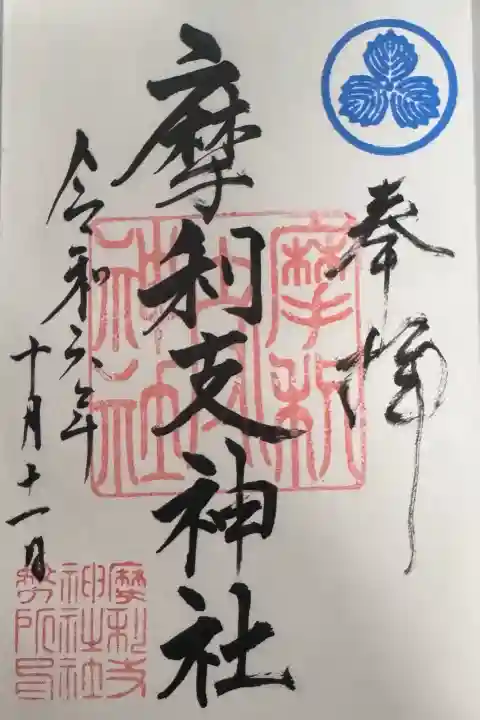 奉拝
摩利支神社
令和六年
十月十一日
摩利支神社
摩利支
神社社
務所印